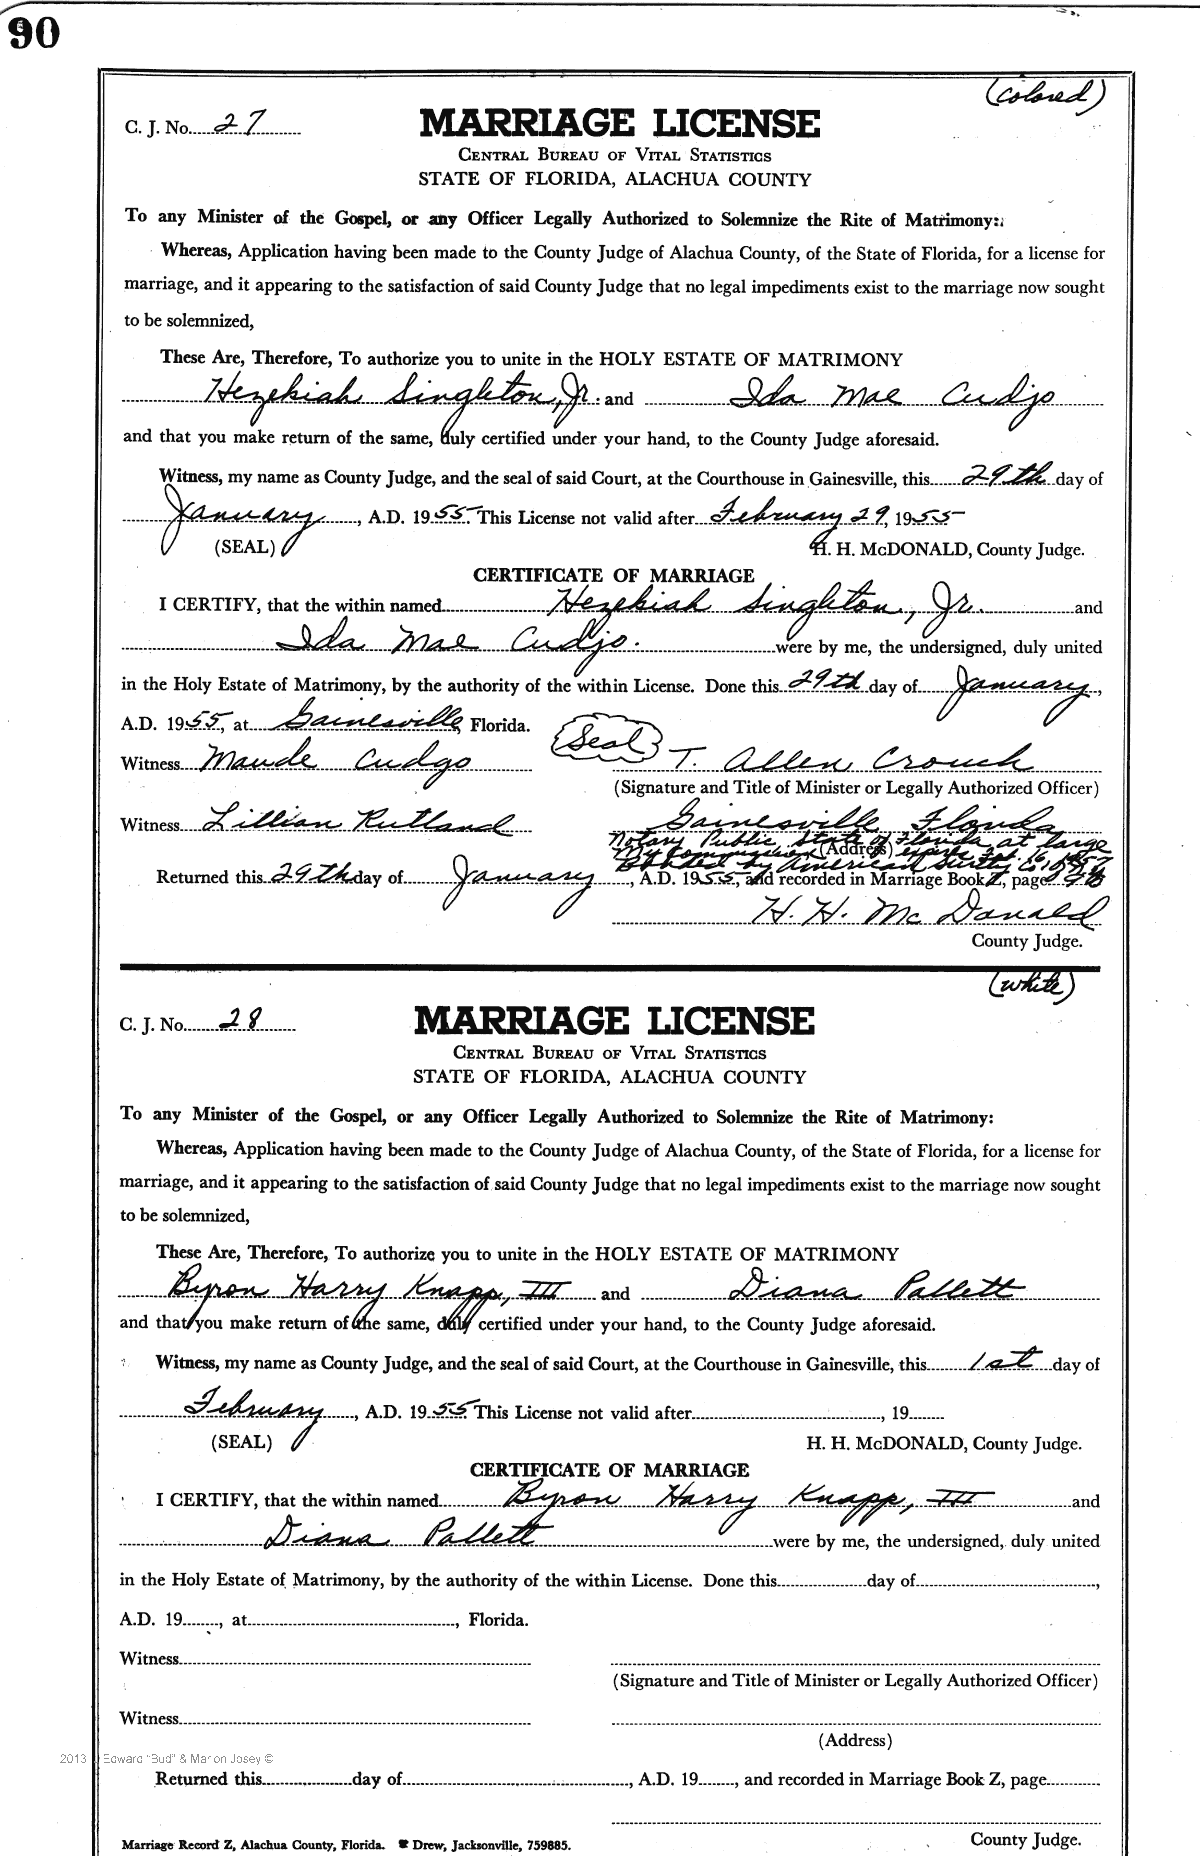 90
(colored)
C. J. No. 27
MARRIAGE LICENSE
CENTRAL BUREAU OF VITAL STATISTICS
STATE OF FLORIDA, ALACHUA COUNTY
To any Minister of the Gospel, or any Officer Legally Authorized to Solemnize the Rite of Matrimony:
Whereas, Application having been made to the County Judge of Alachua County, of the State of Florida, for a license for
marriage, and it appearing to the satisfaction of said County Judge that no legal impediments exist to the marriage now sought
to be solemnized,
These Are, Therefore, To authorize you to unite in the HOLY ESTATE OF MATRIMONY
Hezekiah Singleton, Jr. and Ida Mae Cudjo
and that you make return of the same, duly certified under your hand, to the County Judge aforesaid.
Witness, my name as County Judge, and the seal of said Court, at the Courthouse in Gainesville, this 29th day of
January, A.D. 1955. This License not valid after February 29, 1955
(SEAL) H. H. McDONALD, County Judge.
CERTIFICATE OF MARRIAGE
I CERTIFY, that the within named Hezekiah Singleton, Jr. and
Ida Mae Cudjo. were by me, the undersigned, duly united
in the Holy Estate of Matrimony, by the authority of the within License. Done this 29th day of January,
A.D. 1955, at Gainesville, Florida.
Seal
Witness Maude Cudgo T. Allen Crouch
(Signature and Title of Minister or Legally Authorized Officer)
Witness Lillian Rutland Gainesville Florida
Notary Public, State of Florida at large
My commission (Address) expires Feb. 16, 1957
Bonded by American Surety Co. of N.Y.
Returned this 29th day of January, A.D. 1955, and recorded in Marriage Book Z, page 90
H. H. McDonald
County Judge.
(white)
C. J. No. 28
MARRIAGE LICENSE
CENTRAL BUREAU OF VITAL STATISTICS
STATE OF FLORIDA, ALACHUA COUNTY
To any Minister of the Gospel, or any Officer Legally Authorized to Solemnize the Rite of Matrimony:
Whereas, Application having been made to the County Judge of Alachua County, of the State of Florida, for a license for
marriage, and it appearing to the satisfaction of said County Judge that no legal impediments exist to the marriage now sought
to be solemnized,
These Are, Therefore, To authorize you to unite in the HOLY ESTATE OF MATRIMONY
Byron Harry Knapp, III and Diana Pallett
and that you make return of the same, duly certified under your hand, to the County Judge aforesaid.
Witness, my name as County Judge, and the seal of said Court, at the Courthouse in Gainesville, this 1st day of
February, A.D. 1955. This License not valid after , 19
(SEAL) H. H. McDONALD, County Judge.
CERTIFICATE OF MARRIAGE
I CERTIFY, that the within named Byron Harry Knapp, III and
Diana Pallett were by me, the undersigned, duly united
in the Holy Estate of Matrimony, by the authority of the within License. Done this day of ,
A.D. 19 , at , Florida.
Witness
(Signature and Title of Minister or Legally Authorized Officer)
Witness
(Address)
2013 Edward "Bud" & Marion Josey ©
Returned this day of , A.D. 19 , and recorded in Marriage Book Z, page
County Judge.
Marriage Record Z, Alachua County, Florida. Drew, Jacksonville, 759885.